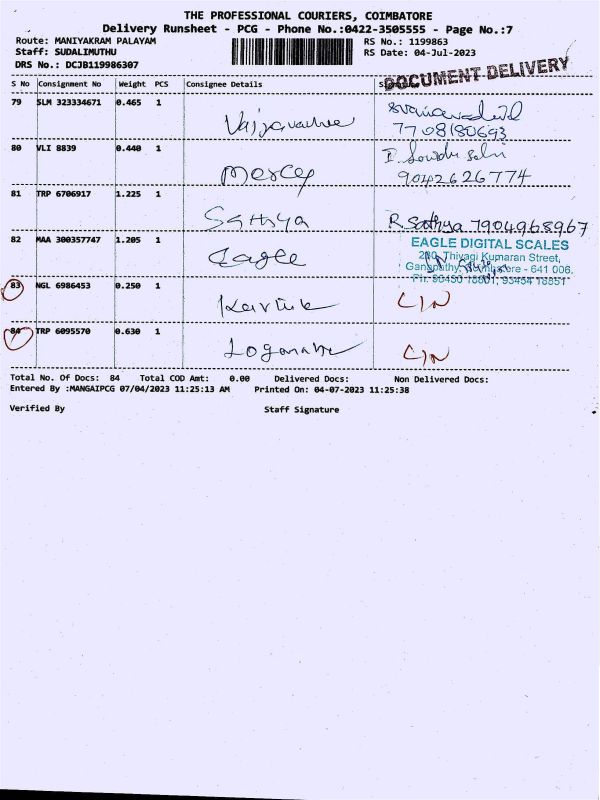 THE PROFESSIONAL COURIERS, COIMBATORE
Delivery Runsheet - PCG - Phone No.:0422-3505555 - Page No.:7
Route: MANIYAKRAM PALAYAM
Staff: SUDALIMUTHU
DRS No.: DCJB119986307
RS No.: 1199863
RS Date: 04-Jul-2023
DOCUMENT DELIVERY
S No Consignment No Weight PCS Consignee Details
79 SLM 323334671 0.465 1
7708180693
80 VLI 8839 0.440 1 Mercy
9042626774
81 TRP 6706917 1.225 1 Sathya R. Sathya 7904968967
82 MAA 300357747 1.205 1 Eagle
EAGLE DIGITAL SCALES
Thivagi Kumaran Street,
- 641 006.
83 NGL 6986453 0.250 1 Karthik CIN
84 TRP 6095570 0.630 1 CIN
Total No. Of Docs: 84 Total COD Amt: 0.00 Delivered Docs: Non Delivered Docs:
Entered By :MANGAIPCG 07/04/2023 11:25:13 AM Printed On: 04-07-2023 11:25:38
Verified By Staff Signature